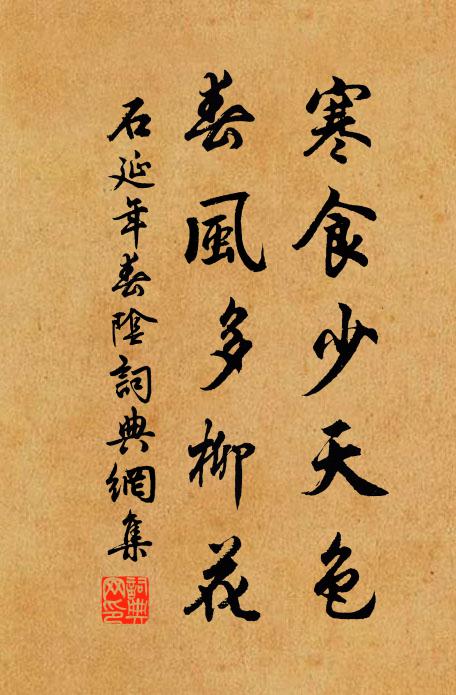 寒食少天色
春風多柳花
石延年春陰詞典網集
詞典網印